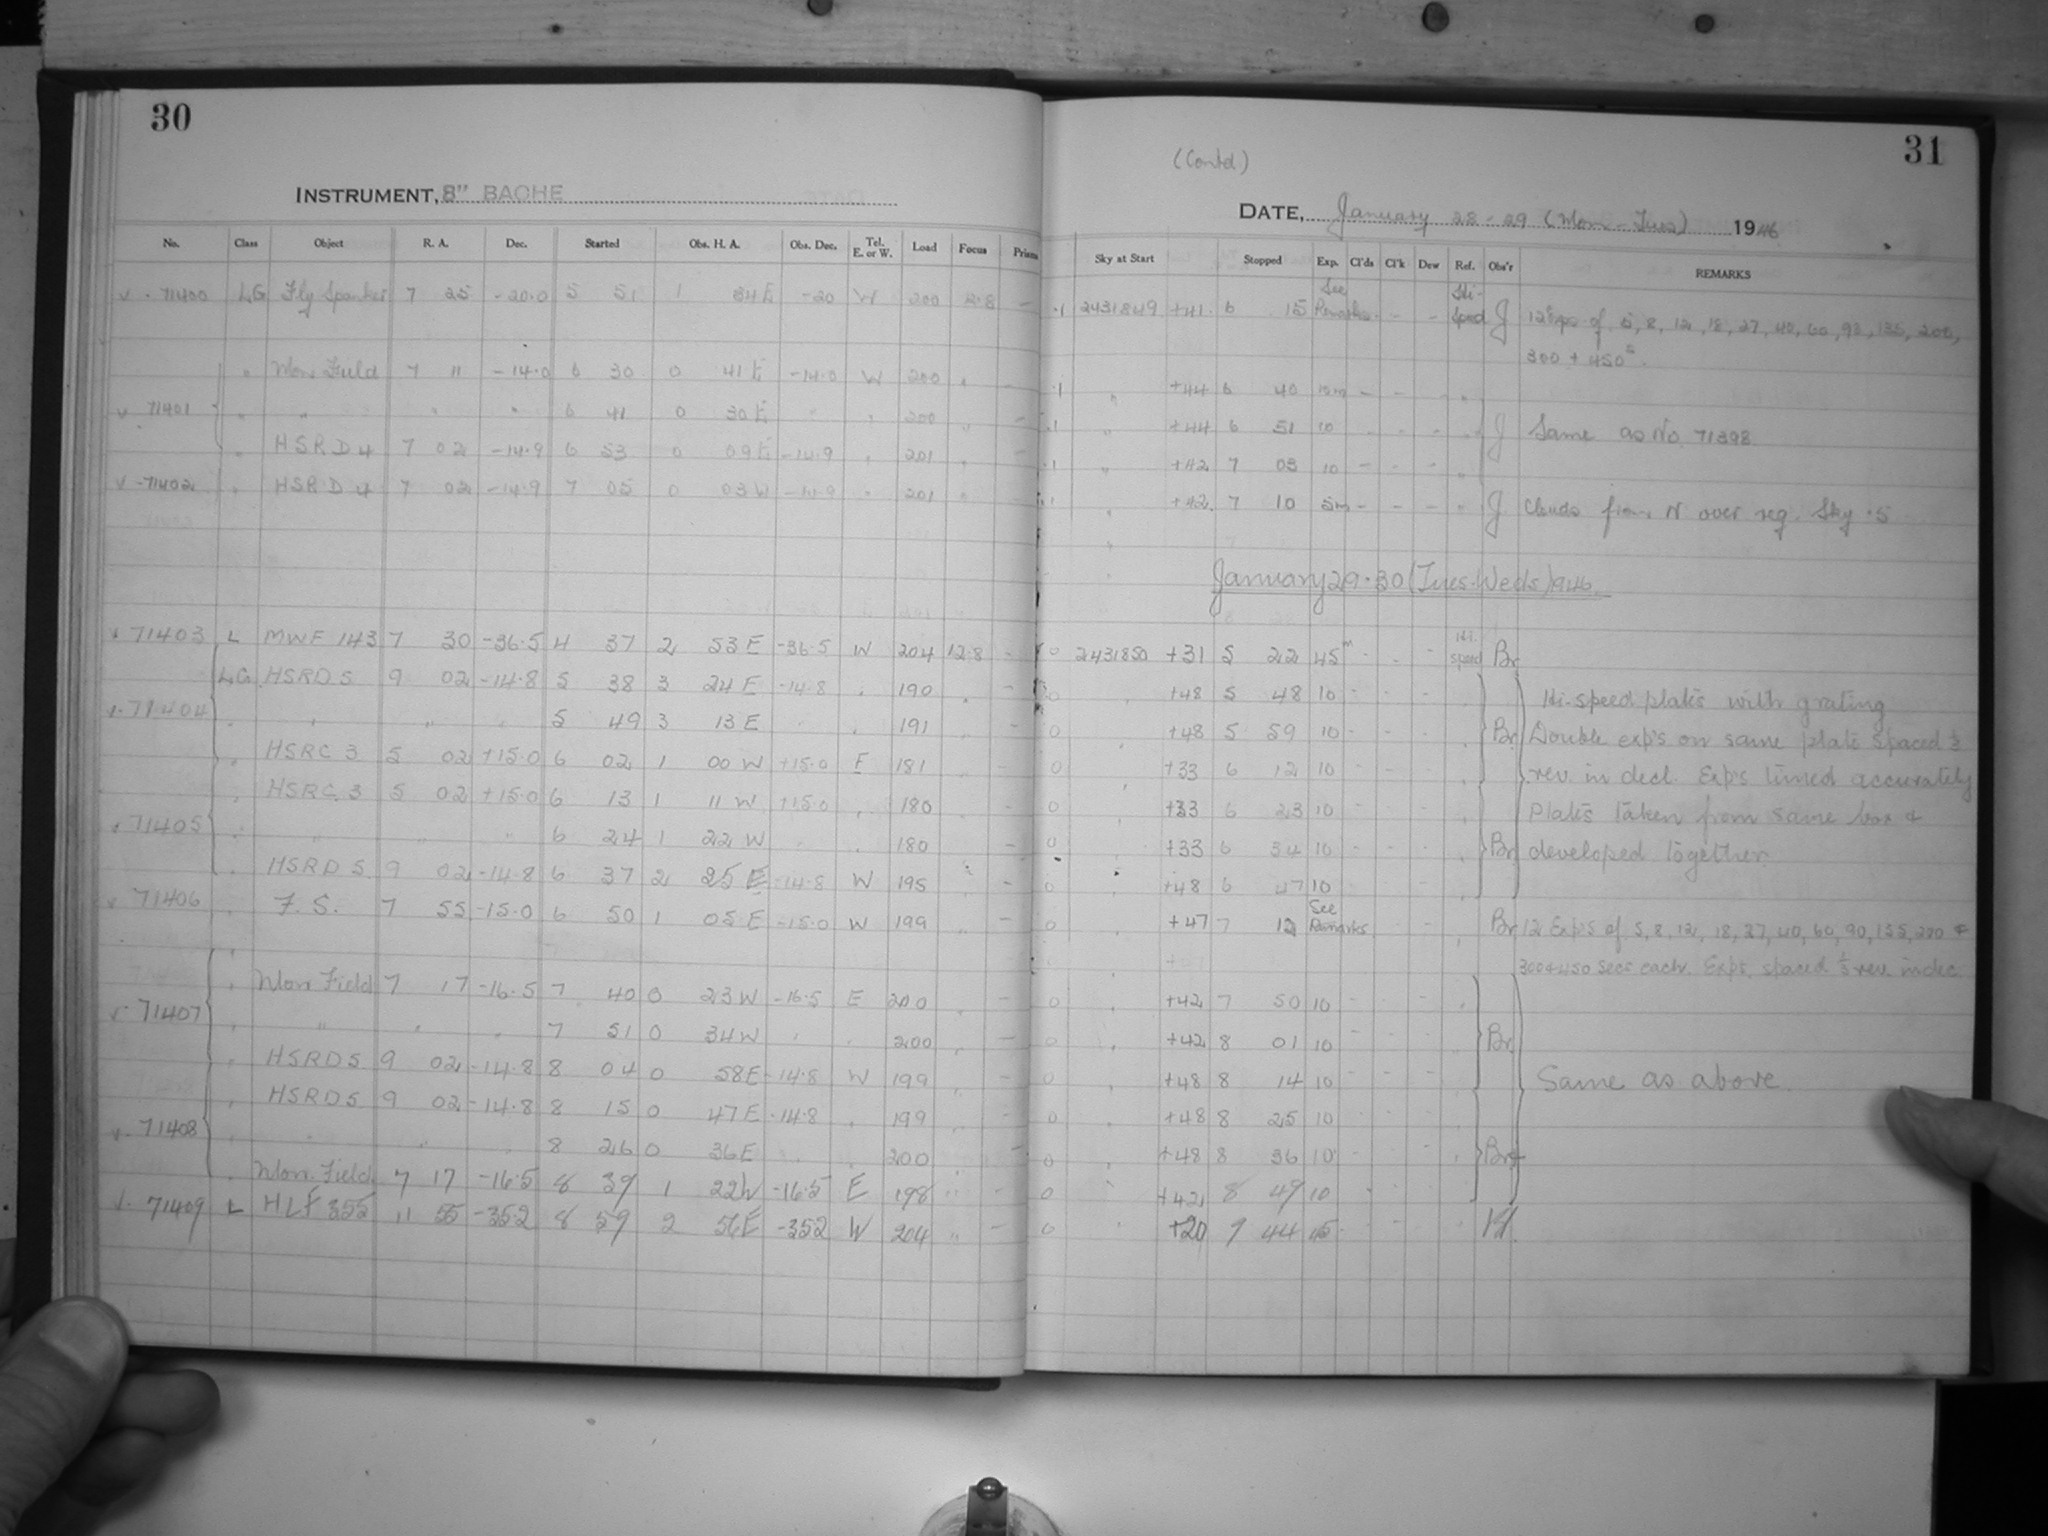 30
INSTRUMENT, 8" BACHE
No. Class Object R. A. Dec. Started Obs. H. A. Obs. Dec. Tel. E. or W. Load Focus Prism
71400 LG Fly Spanker 7 25 -20.0 5 51 1 34 E -20 W 200 12.8 -
" Mon Field 7 11 -14.0 6 30 0 41 E -14.0 W 200 " -
71401 " " " " 6 41 0 30 E " " 200 " -
" HSRD 4 7 02 -14.9 6 53 0 09 E -14.9 " 201 " -
71402 " HSRD 4 7 02 -14.9 7 05 0 03 W -14.9 " 201 " -
71403 L MWF 143 7 30 -36.5 4 37 2 53 E -36.5 W 204 12.8 -
LG HSRD 5 9 02 -14.8 5 38 3 24 E -14.8 " 190 " -
71404 " " " " 5 49 3 13 E " " 191 " -
" HSRC 3 5 02 +15.0 6 02 1 00 W +15.0 E 181 " -
" HSRC 3 5 02 +15.0 6 13 1 11 W +15.0 " 180 " -
71405 " " " " 6 24 1 22 W " " 180 " -
" HSRD 5 9 02 -14.8 6 37 2 25 E -14.8 W 195 " -
71406 " F. S. 7 55 -15.0 6 50 1 05 E -15.0 W 199 " -
" Mon Field 7 17 -16.5 7 40 0 23 W -16.5 E 200 " -
71407 " " " " 7 51 0 34 W " " 200 " -
" HSRD 5 9 02 -14.8 8 04 0 58 E -14.8 W 199 " -
" HSRD 5 9 02 -14.8 8 15 0 47 E -14.8 " 199 " -
71408 " " " " 8 26 0 36 E " " 200 " -
" Mon. Field 7 17 -16.5 8 39 1 22 W -16.5 E 198 " -
71409 L HLF 355 11 55 -35.2 8 59 2 56 E -35.2 W 204 " -
31
(Contd)
DATE, January 28-29 (Mon-Tues) 1946
Sky at Start Stopped Exp. Cl'ds Cl'k Dew Ref. Obs'r REMARKS
.1 2431849 +41 6 15 See Remarks - - - Hi-Speed J 12 exps of 5, 8, 12, 18, 27, 40, 60, 90, 135, 200,
300 + 450s.
.1 " +44 6 40 10m - - - "
.1 " +44 6 51 10 - - - " J Same as No. 71398
.1 " +42 7 03 10 - - - "
.1 " +42 7 10 5m - - - " J Clouds from N over reg. Sky .5
January 29-30 (Tues-Weds) 1946
0 2431850 +31 5 22 45m - - - Hi. speed Br
0 " +48 5 48 10 - - - " Hi-speed plates with grating
0 " +48 5 59 10 - - - " Br Double exp's on same plate spaced ½
0 " +33 6 12 10 - - - " rev. in decl. Exp's timed accurately
0 " +33 6 23 10 - - - " Plates taken from same box &
0 " +33 6 34 10 - - - " Br developed together.
0 " +48 6 47 10 - - - "
0 " +47 7 12 See Remarks - - " Br 12 Exp's of 5, 8, 12, 18, 27, 40, 60, 90, 135, 200 &
300 & 450 secs each. Exps. spaced ⅓ rev. in dec.
0 " +42 7 50 10 - - - "
0 " +42 8 01 10 - - - Br
0 " +48 8 14 10 - - - Same as above.
0 " +48 8 25 10 - - - "
0 " +48 8 36 10 - - - " Br
0 " +42 8 49 10 - - -
0 " +20 9 44 45 - - -